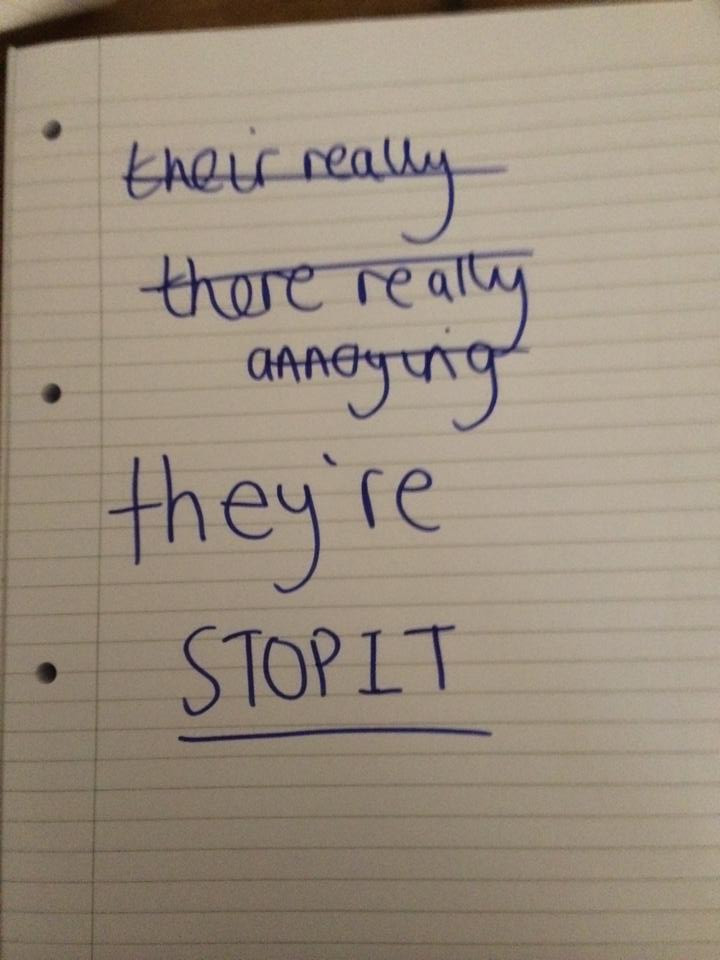 their really
there really
annoying
they're
STOP IT